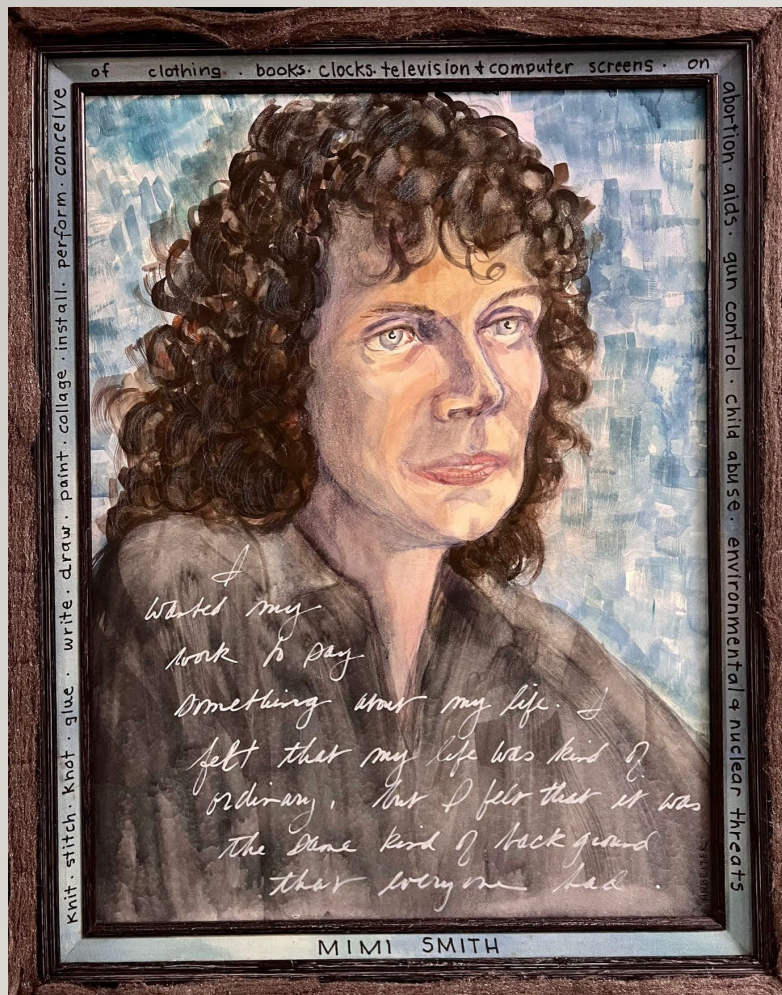 knit · stitch · knot · glue · write · draw · paint · collage · install · perform · conceive
of clothing · books · clocks · television & computer screens · on
abortion · aids · gun control · child abuse · environmental & nuclear threats
I
wanted my
work to say
something about my life. I
felt that my life was kind of
ordinary, but I felt that it was
the same kind of background
that everyone had.
ARBEITER
MIMI SMITH